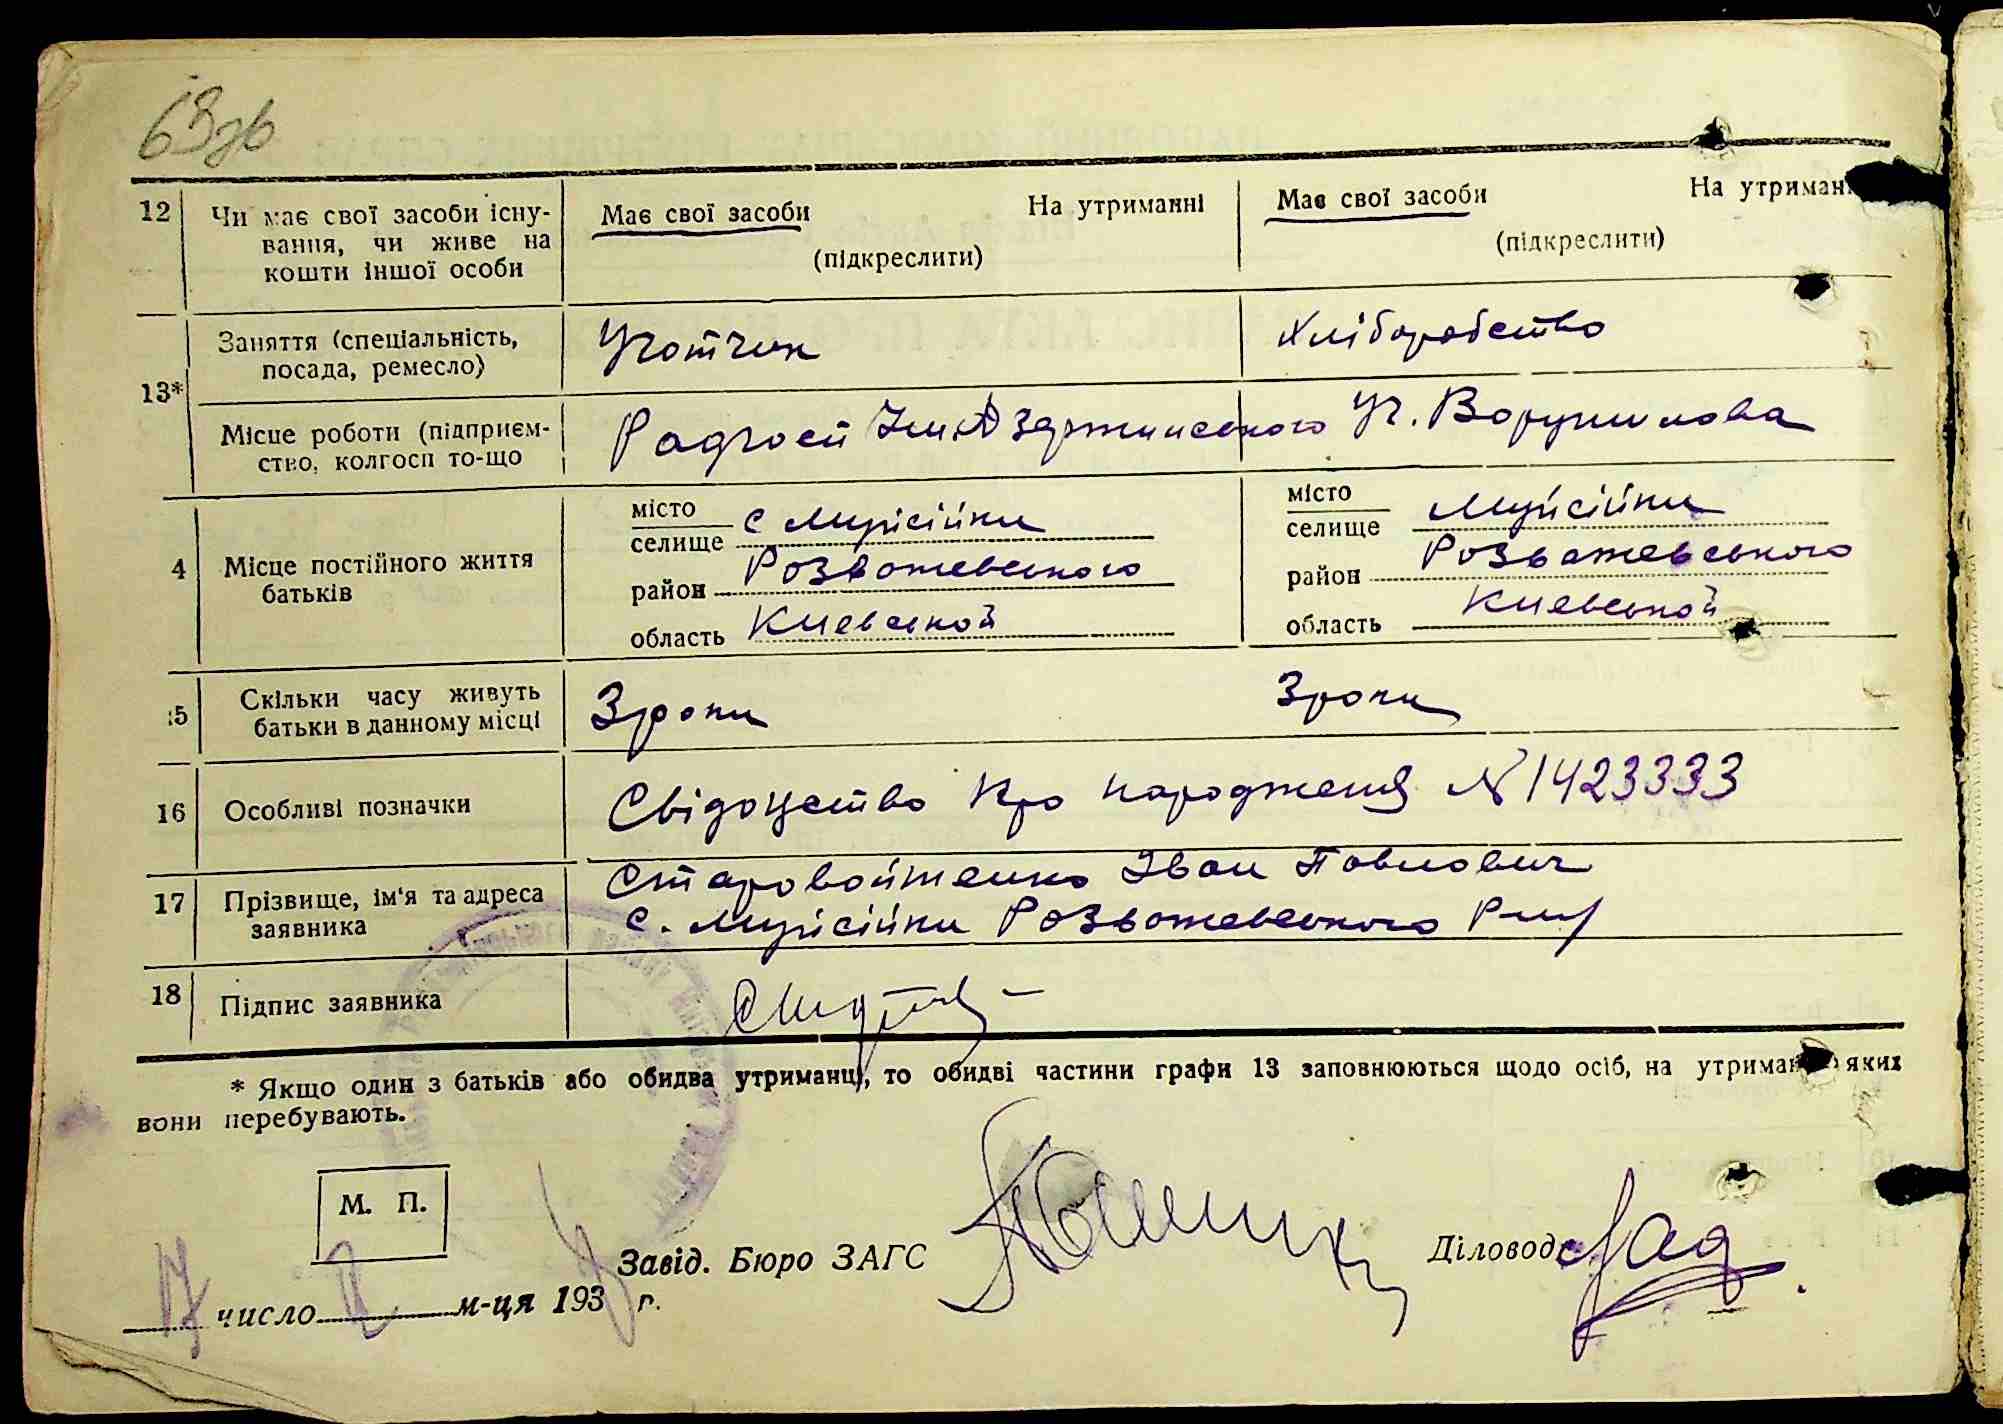 63зв
12 Чи має свої засоби існу- Має свої засоби На утриманні Має свої засоби На утриманн
вання, чи живе на (підкреслити) (підкреслити)
кошти іншої особи
13* Заняття (спеціальність, Учотчик Хліборобство
посада, ремесло)
Місце роботи (підприєм- Радгосп Ім Дзержинського Уч. Ворушилова
ство, колгосп то-що
4 Місце постійного життя батьків
місто селище с Муйсійки місто селище Муйсійки
район Розважевського район Розважевського
область Киевської область Киевської
15 Скільки часу живуть 3 роки 3 роки
батьки в данному місці
16 Особливі позначки Свідоцство про народженя № 1423333
17 Прізвище, ім'я та адреса Старовойтенко Іван Павлович
заявника с. Муйсійки Розважевського
18 Підпис заявника
* Якщо один з батьків або обидва утриманці, то обидві частини графи 13 заповнюються щодо осіб, на утриман яких
вони перебувають.
М. П.
Завід. Бюро ЗАГС Діловод
17 число 2 м-ця 193 г.